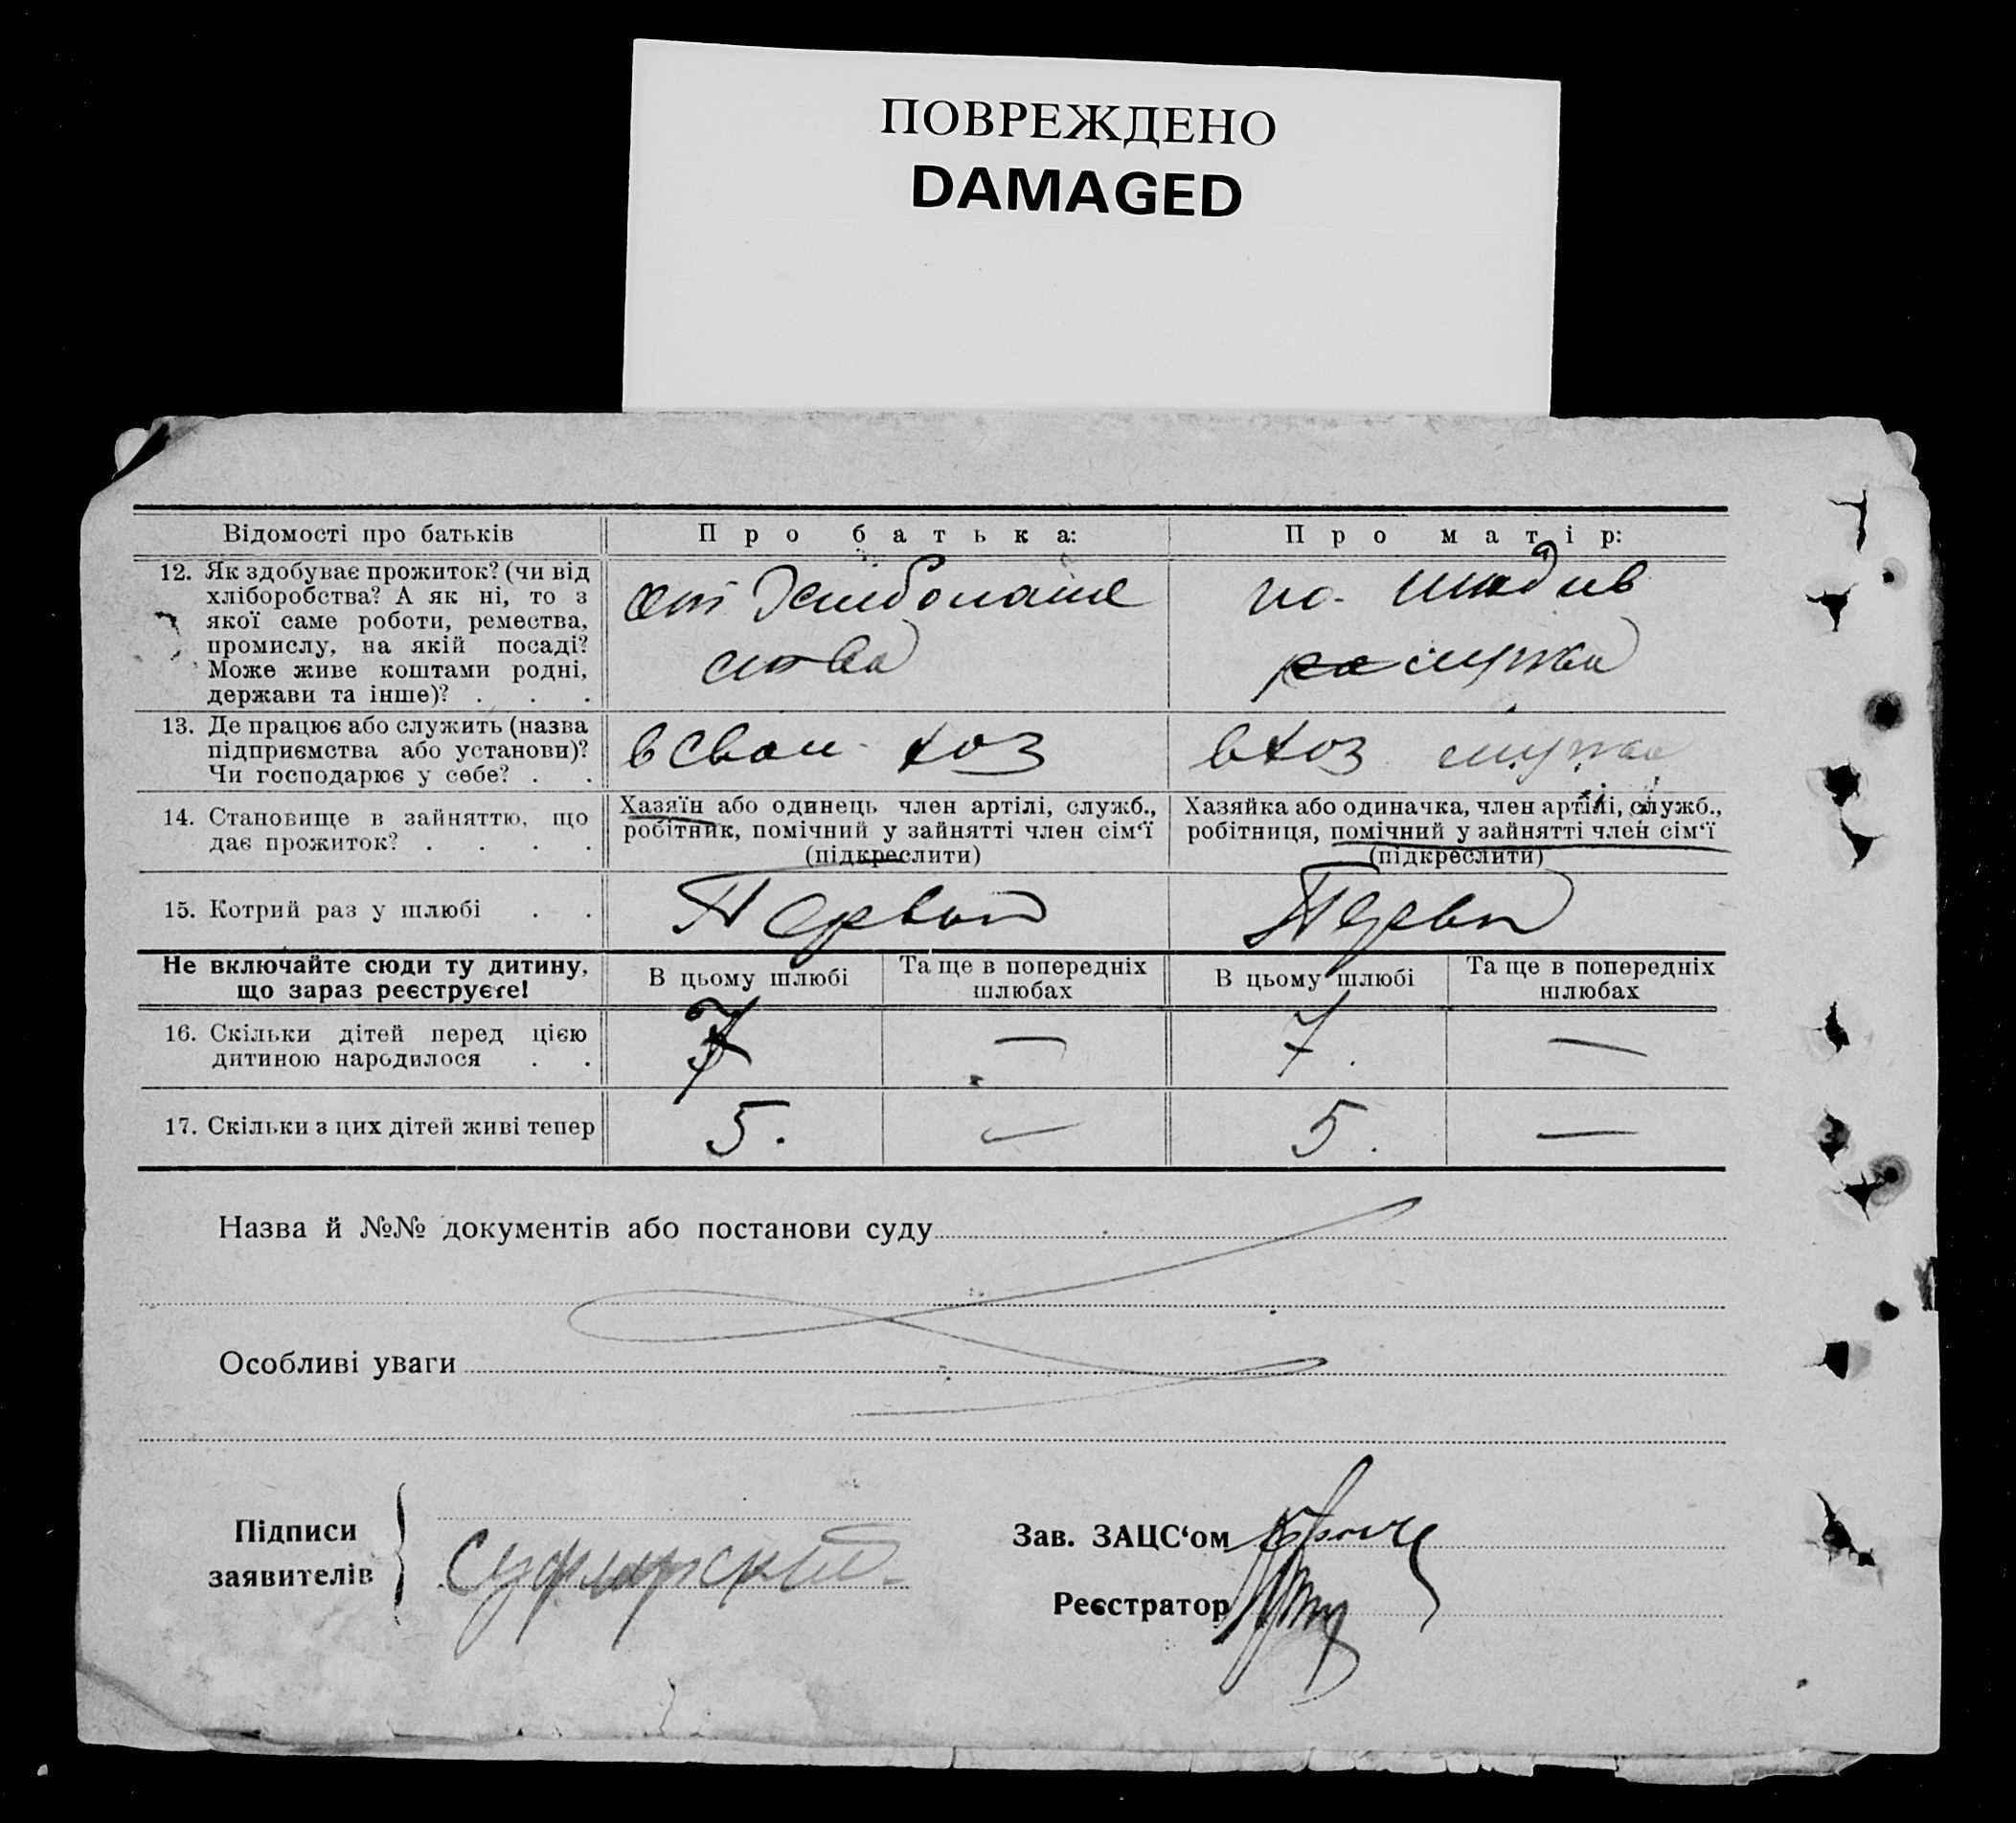 ПОВРЕЖДЕНО
DAMAGED
Відомості про батьків
Про батька:
Про матір:
12. Як здобуває прожиток? (чи від
хліборобства? А як ні, то з
якої саме роботи, ремества,
промислу, на якій посаді?
Може живе коштами родні,
держави та інше)? . . .
от
ства
мужа
13. Де працює або служить (назва
підприємства або установи)?
Чи господарює у себе? . .
в своем хоз
в хоз мужа
14. Становище в зайняттю, що
дає прожиток? . . . .
Хазяїн або одинець член артілі, служб.,
робітник, помічний у зайнятті член сім'ї
(підкреслити)
Хазяйка або одиначка, член артілі, служб.,
робітниця, помічний у зайнятті член сім'ї
(підкреслити)
15. Котрий раз у шлюбі . .
Первый
Первы
Не включайте сюди ту дитину,
що зараз реєструєте!
В цьому шлюбі
Та ще в попередніх
шлюбах
В цьому шлюбі
Та ще в попередніх
шлюбах
16. Скільки дітей перед цією
дитиною народилося . .
7
—
7.
—
17. Скільки з цих дітей живі тепер
5.
—
5.
—
Назва й №№ документів або постанови суду
Особливі уваги
Підписи
заявителів
Зав. ЗАЦС'ом
Реєстратор